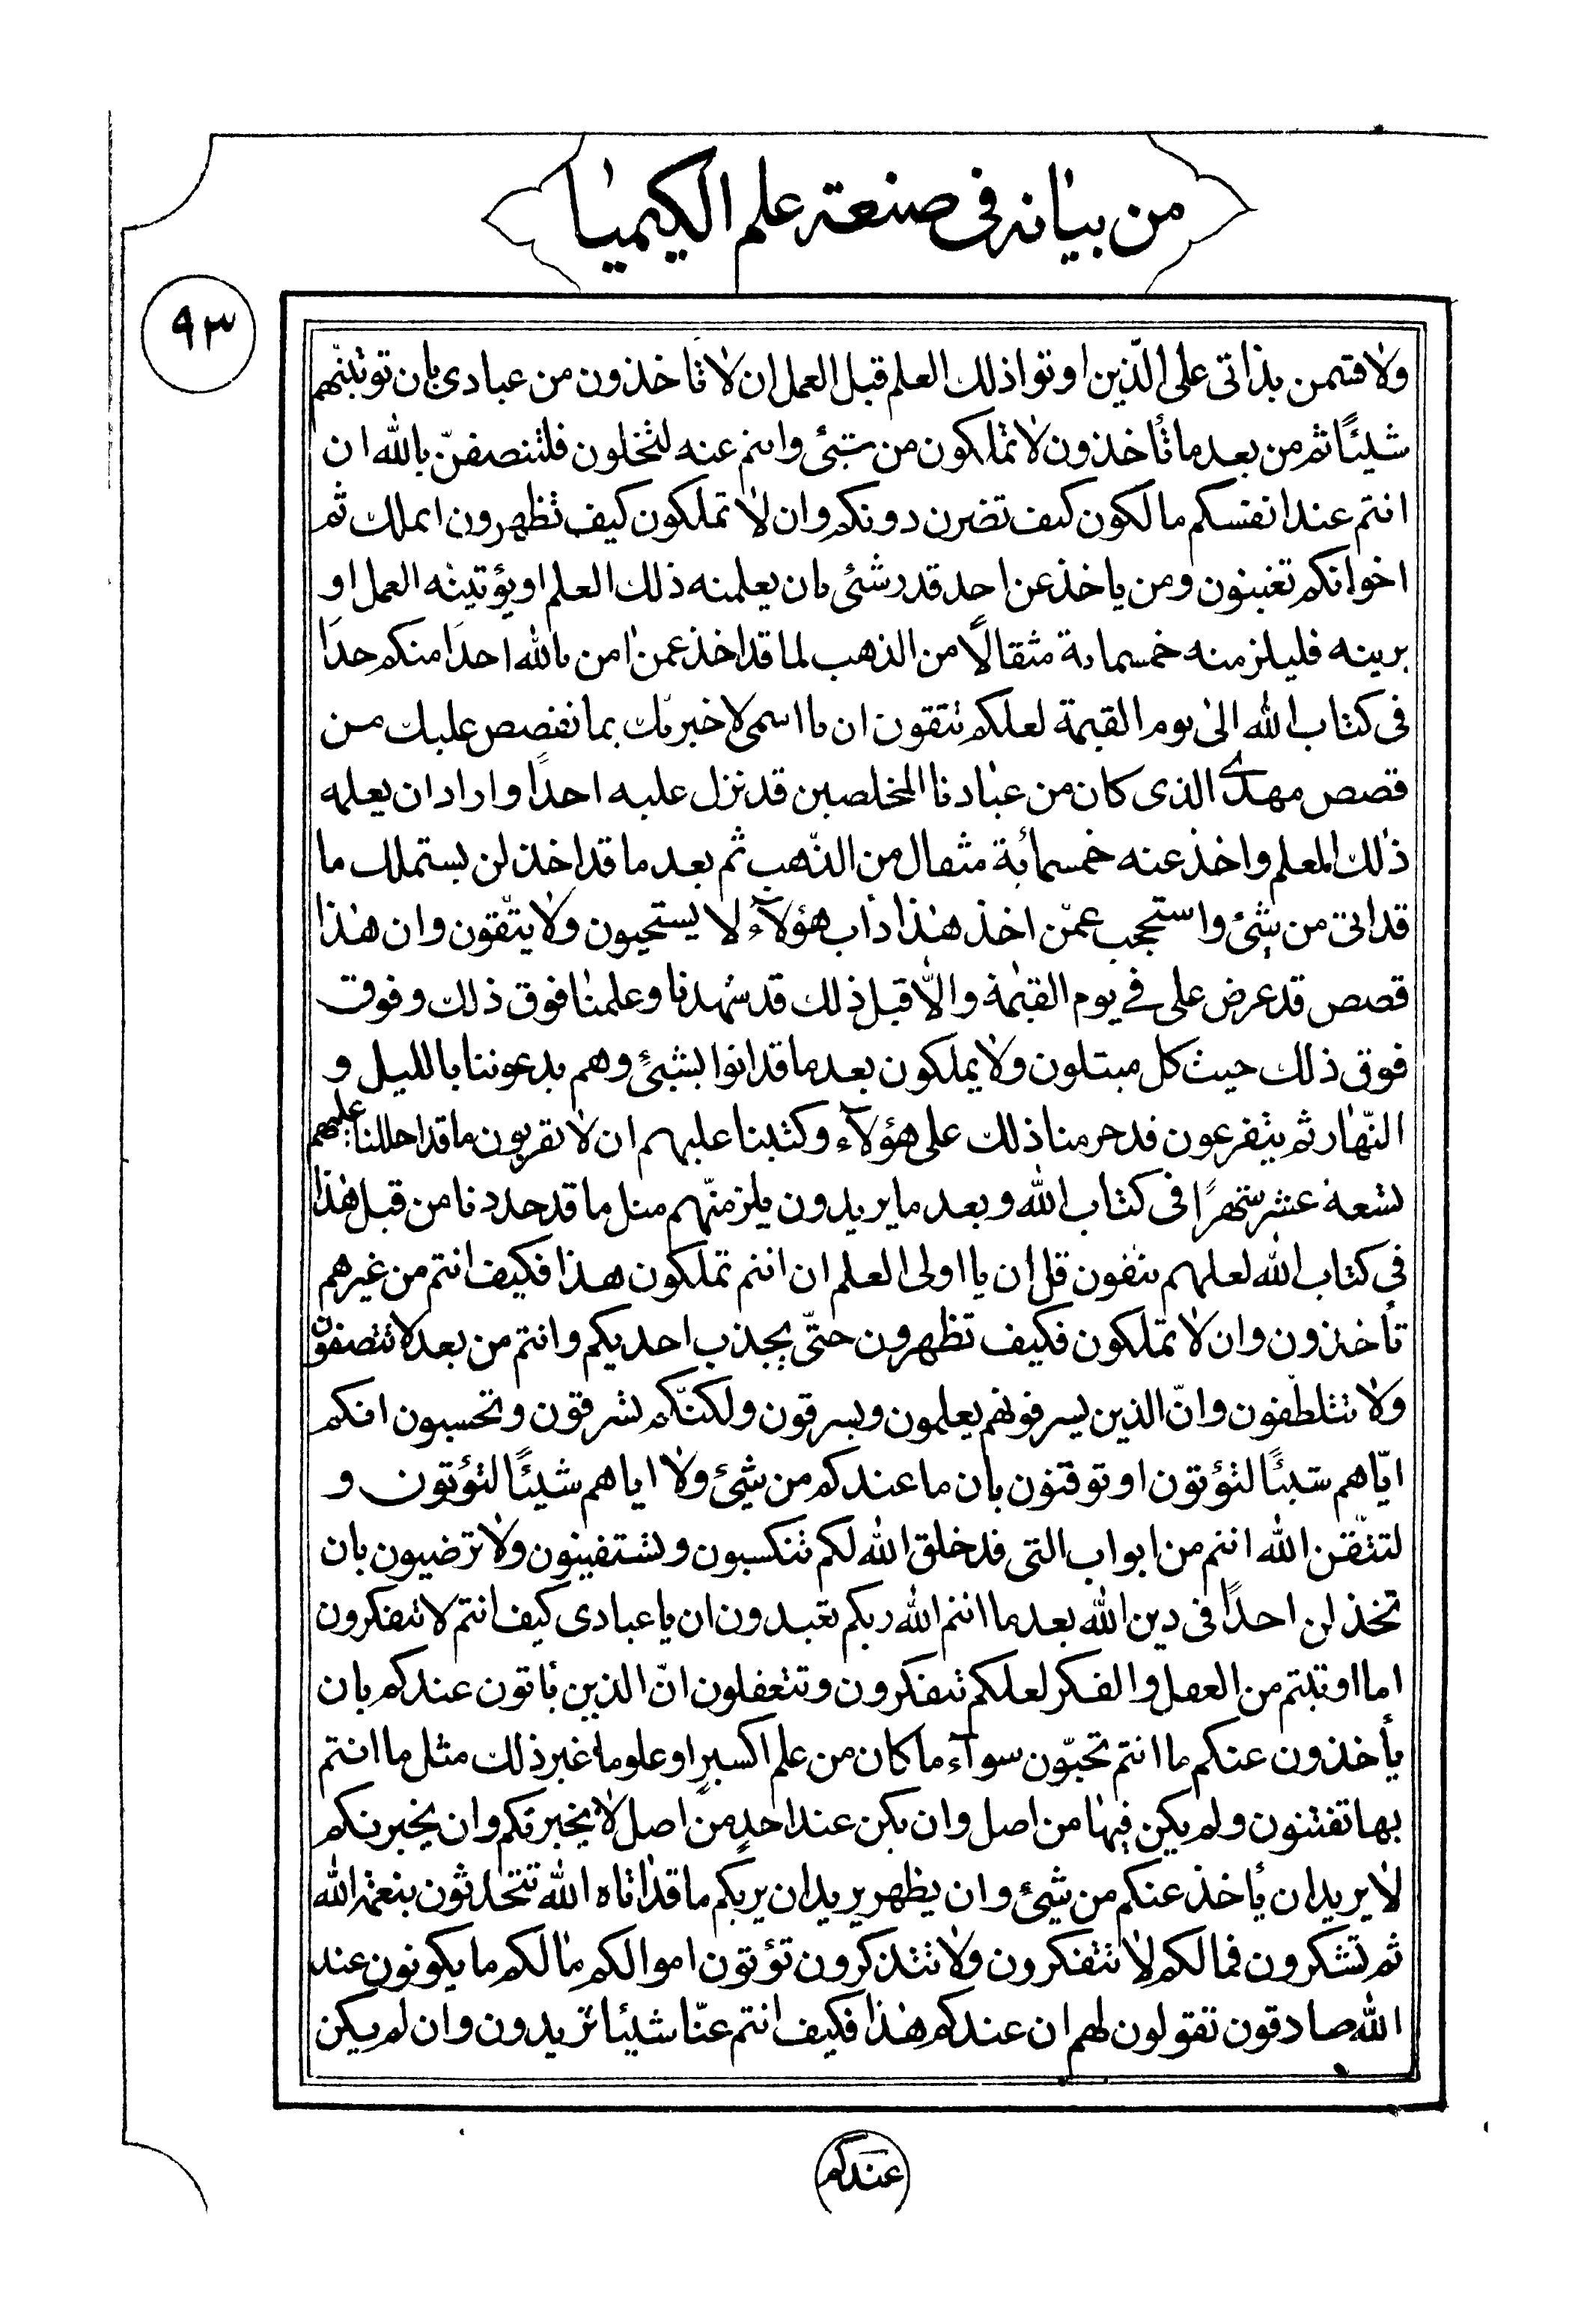 من بيانه في صنعة علم الكيميا
٩٣
ولاقسمن بذاتى على الّذين اوتوا ذلك العلم قبل العمل ان لا تاخذون من عبادى بان توتينّهم
شيئًا ثم من بعد ما تأخذون لا تملكون من شئ وانتم عنه لتخلون فلتنصفنّ بالله ان
انتم عند انفسكم مالكون كيف تضرن دونكم وان لا تملكون كيف تظهرون املك ثم
اخوانكم تغبنون ومن ياخذ عن احد قدر شئ بان يعلمنه ذلك العلم او يؤتينه العمل او
يرينه فليلزمنه خمسماءة مثقالًا من الذهب لما قد اخذ عمن امن بالله احدًا منكم حدًا
فى كتاب الله الى يوم القيمة لعلكم تتقون ان يا اسمى لاخبرنّك بما نقصص عليك من
قصص مهدى الذى كان من عبادنا المخلصين قد نزل عليه احدًا واراد ان يعلمه
ذلك المعلم واخذ عنه خمسمائة مثقال من الذّهب ثم بعد ما قد اخذ لن يستملك ما
قد اتى من شئ واستحجب عمّن اخذ هذا داب هؤلآء لا يستحيون ولا يتّقون وان هذا
قصص قد عرض على في يوم القيمة والّا قبل ذلك قد شهدنا وعلمنا فوق ذلك وفوق
فوق ذلك حيث كل مبتلون ولا يملكون بعد ما قد اتوا بشئ وهم يدعوننا بالليل و
النّهار ثم يتفرعون قد حرمنا ذلك على هؤلآء وكتبنا عليهم ان لا يقربون ما قد احللنا عليهم
تسعة عشر شهرًا فى كتاب الله وبعد ما يريدون يلزمنّهم مثل ما قد حددنا من قبل هذا
فى كتاب الله لعلهم يتقون قل ان يا اولى العلم ان انتم تملكون هذا فكيف انتم من غيرهم
تأخذون وان لا تملكون فكيف تظهرون حتّى يجذب احد بكم وانتم من بعد لا تتصفون
ولا تتلطّفون وانّ الذين يسرفونهم يعلمون ويسرقون ولكنّكم تسرقون وتحسبون انكم
ايّاهم شيئًا لتؤتون او توقنون بان ما عندكم من شئ ولا اياهم شيئًا لتؤتون و
لتتّقن الله انتم من ابواب التى قد خلق الله لكم تتكسبون وتستغنون ولا ترضيون بان
تخذلن احدًا فى دين الله بعد ما انتم الله ربكم تعبدون ان يا عبادى كيف انتم لا تتفكرون
اما اوتيتم من العقل والفكر لعلكم تتفكرون وتتعقلون انّ الذين يأتون عندكم بان
يأخذون عنكم ما انتم تحبّون سوآء ما كان من علم اكسير او علوما غير ذلك مثل ما انتم
بها تفتنون ولم يكن فيها من اصل وان يكن عند احد من اصل لا يخبرنكم وان يخبرنكم
لا يريد ان يأخذ عنكم من شئ وان يظهر يريد ان يريكم ما قد اتاه الله تتحدثون بنعمة الله
ثم تشكرون فمالكم لا تتفكرون ولا تتذكرون تؤتون اموالكم مالكم ما يكونون عند
الله صادقون تقولون لهم ان عندكم هذا فكيف انتم عنّا شيئا تريدون وان لم يكن
عندكم